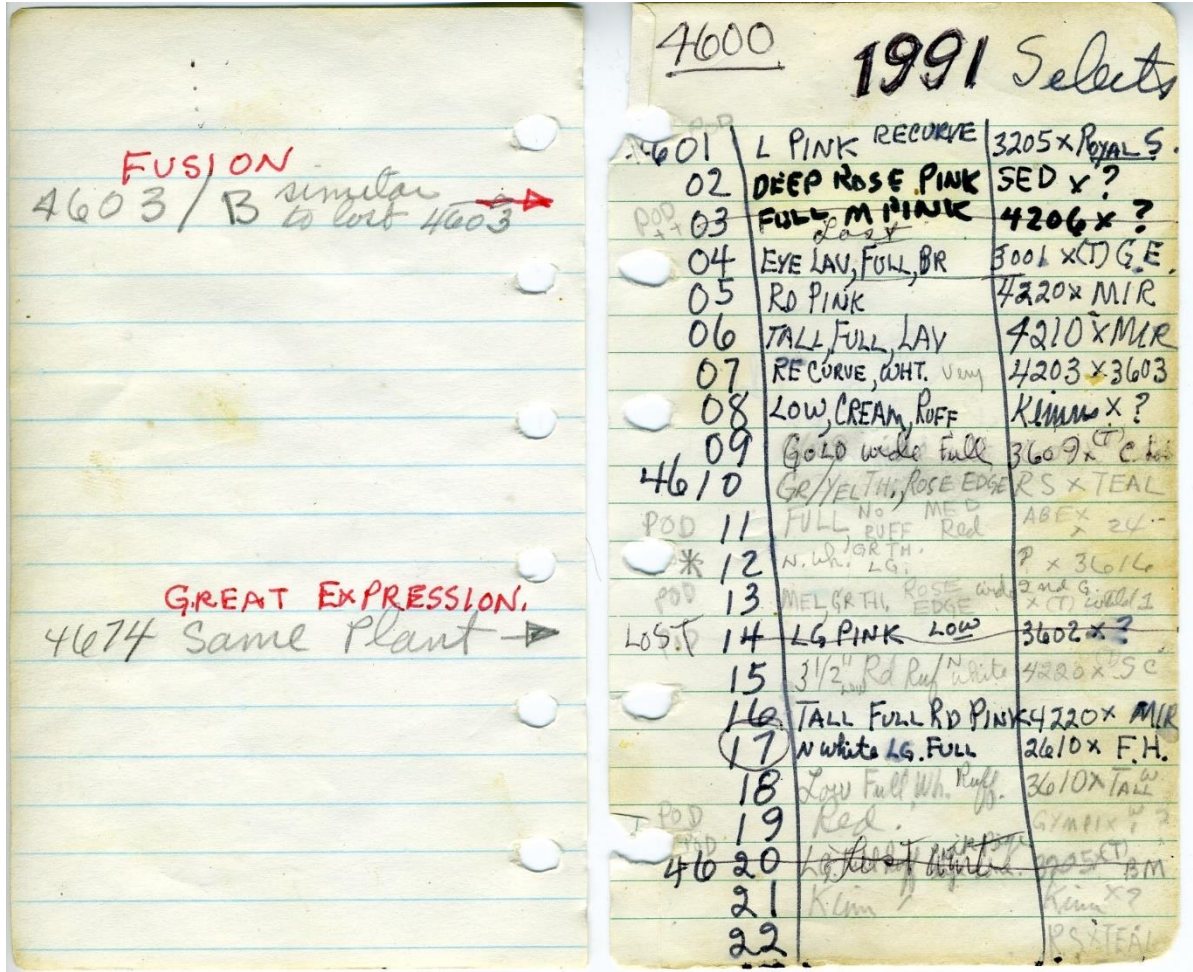 FUSION
4603/B similar
to lost 4603
GREAT EXPRESSION.
4674 Same Plant
4600 1991 Selects
POD
4601 L PINK RECURVE 3205 x ROYAL S.
02 DEEP ROSE PINK SED x ?
POD ++ 03 FULL M PINK 4206 x ?
Lost
04 EYE LAV, FULL, BR 3001 x (T) G.E.
05 RD PINK 4220 x MIR
06 TALL, FULL, LAV 4210 x MIR
07 RECURVE, WHT. very 4203 x 3603
08 LOW, CREAM, RUFF x ?
09 GOLD wide Full 3609 x (T) C
4610 GR/YEL TH., ROSE EDGE RS x TEAL
POD 11 FULL NO RUFF MED Red ABEX x 24-
* 12 N. Wh. GR TH. LG. ? x 3616
POD 13 MEL GR TH, ROSE EDGE 2nd G x (T)
LOST POD 14 LG PINK LOW 3602 x ?
15 3 1/2" low Rd Ruf N White 4220 x SC
16 TALL FULL RD PINK 4220 x MIR
17 N white LG. FULL 2610 x F.H.
18 Low Full, Wh. Ruff. 3610 x TALL W
POD 19 Red.
POD 4620 Lost (T) BM
21 x ?
22 RS x TEAL